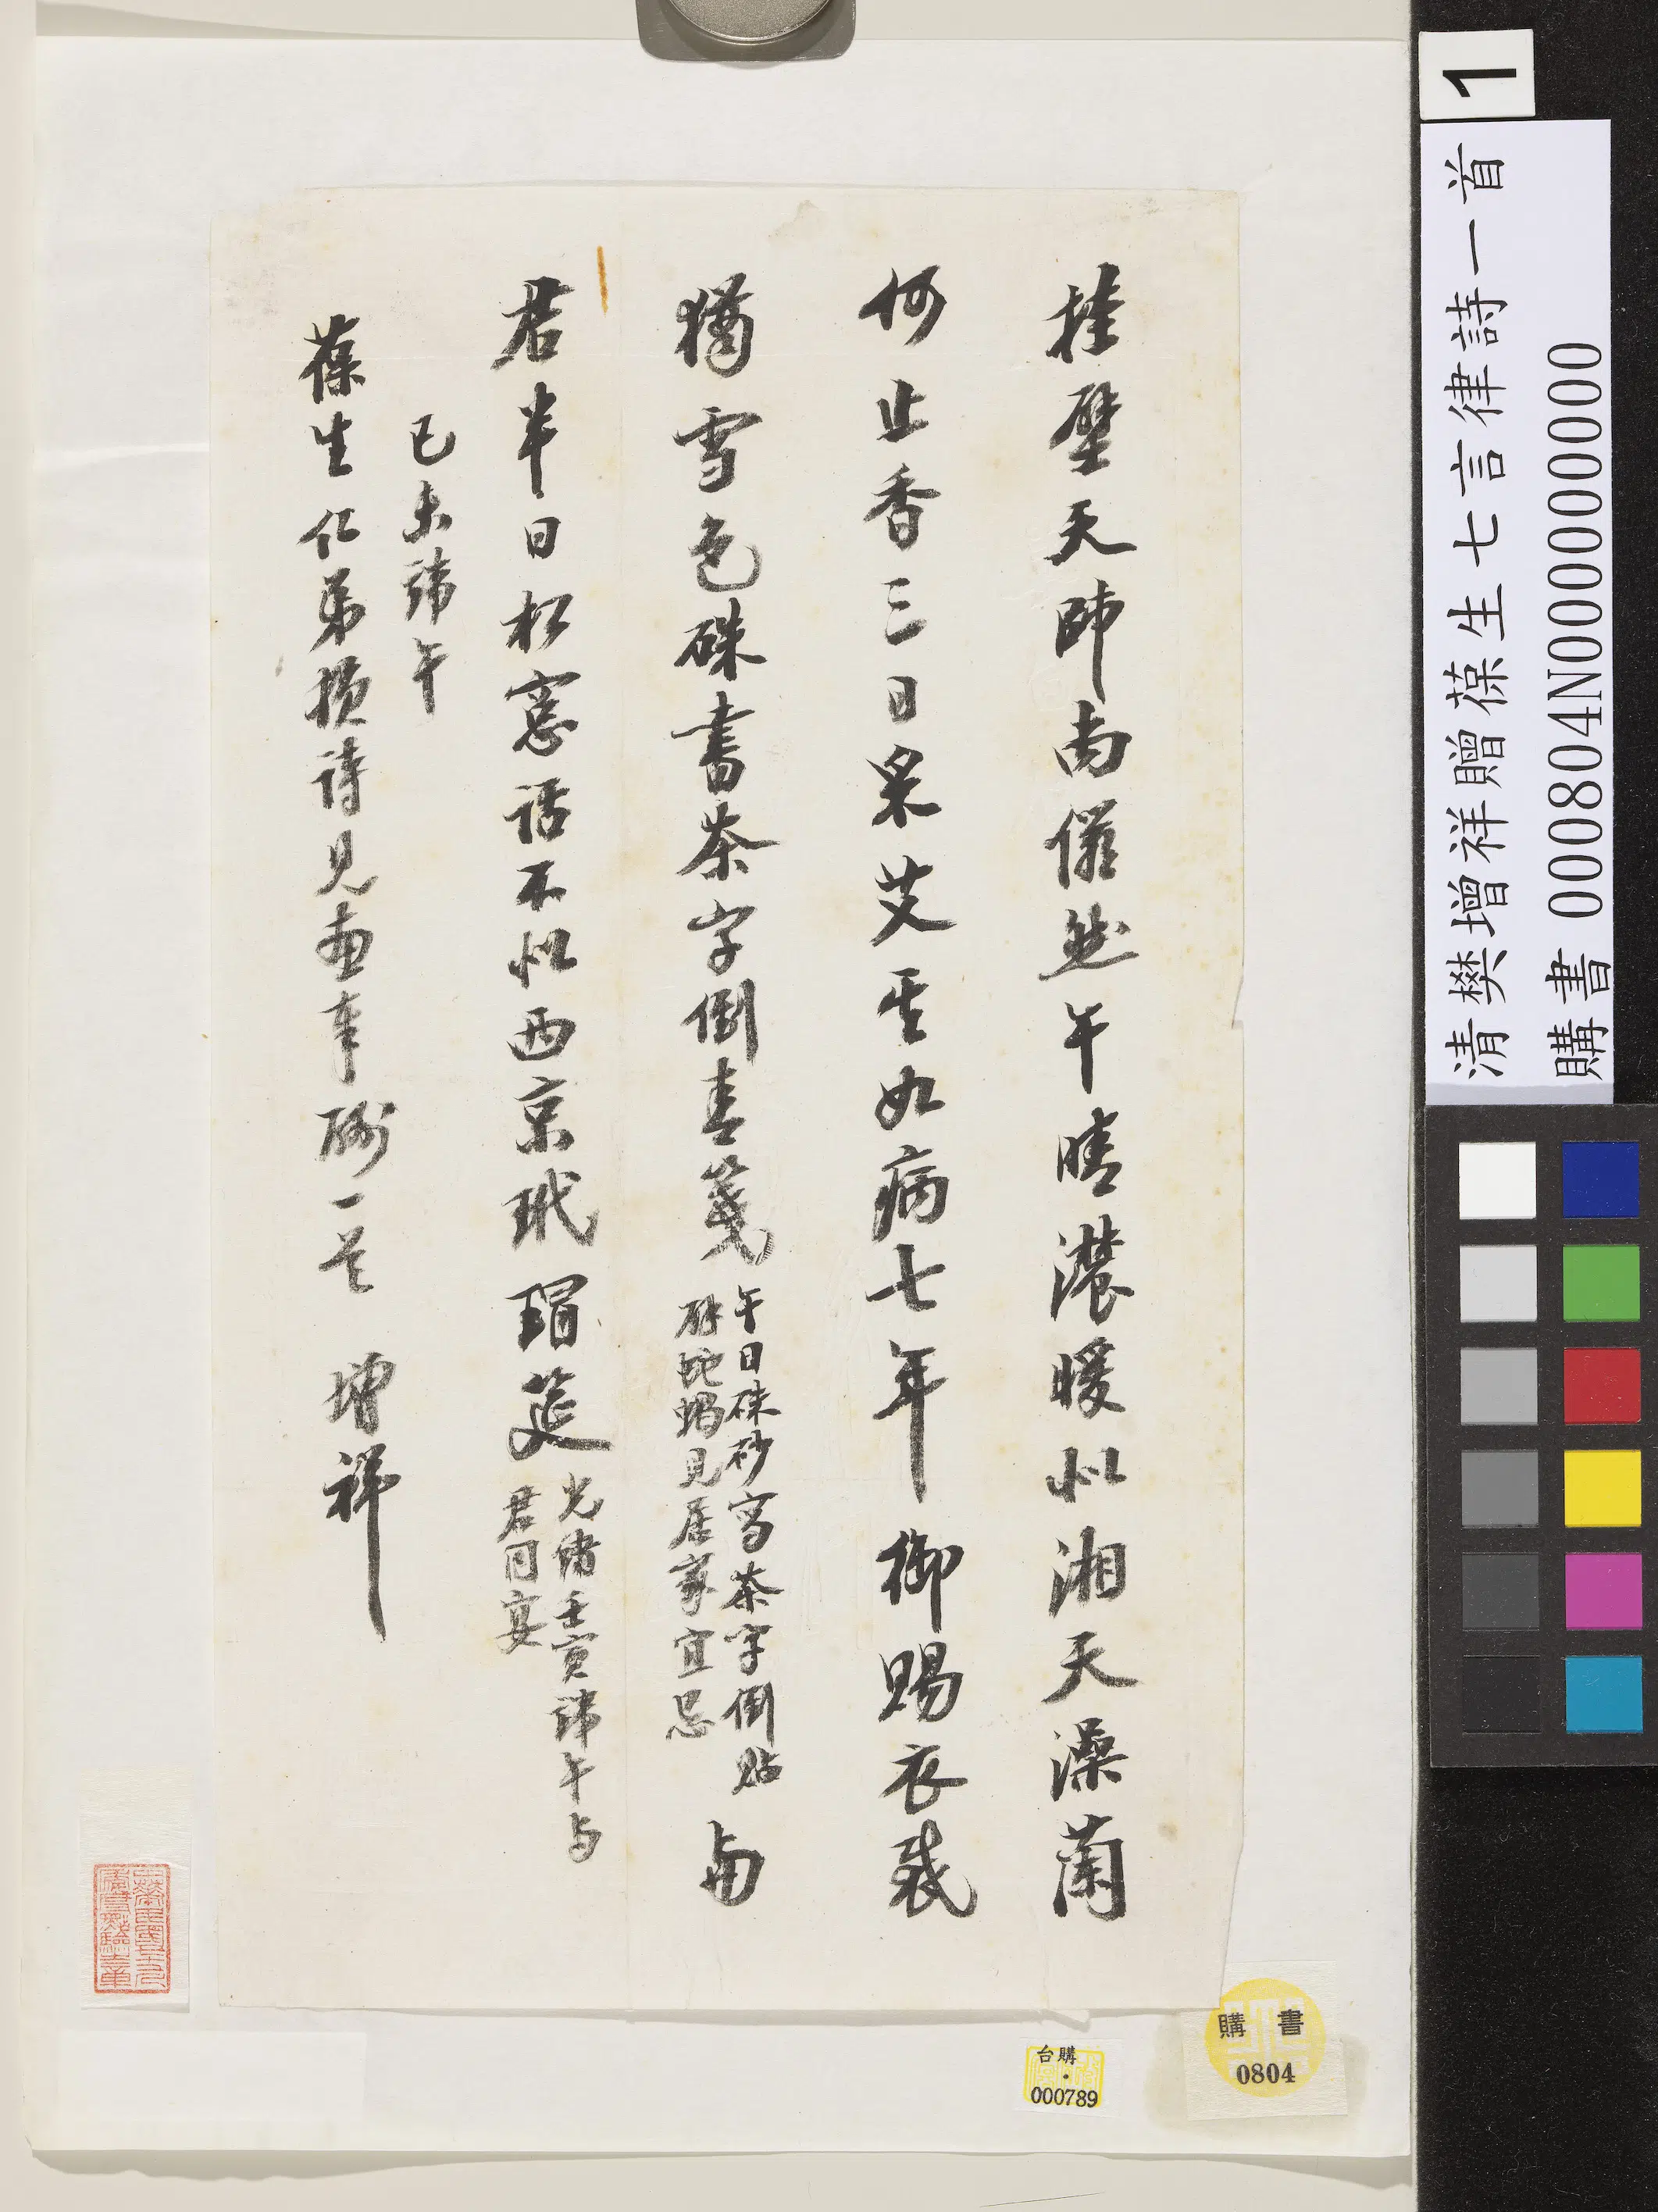 挂壁天師尚儼然午晴濃暖似湘天澡蘭
何止香三日采艾真如病七年御賜衣裁
猶雪色硃書茶字倒書箋午日硃砂寫茶字倒貼
辟蛇蝎見居家宜忌與
君半日松窗話不似西京玳瑁筵光緒壬寅諱午与
君同宴
己未諱午
葆生仁弟損詩見畫奉酬一首 增祥
1
清樊增祥贈葆生七言律詩一首
購書 000804N000000000
購書
0804
台購
000789